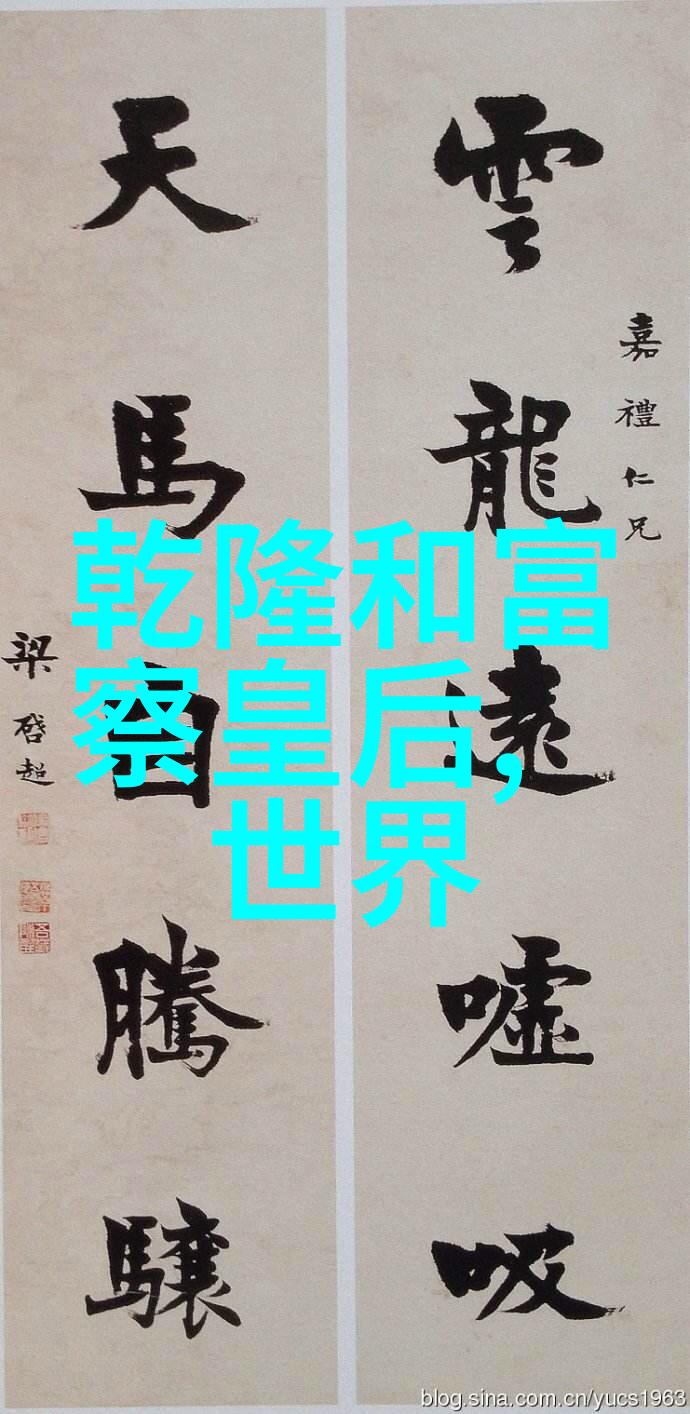 雲龍遠噓吸
嘉禮仁兄
天馬自騰驤
梁啓超
乾隆和富
察皇后,
世界
blog.sina.com.cn/yucs1963